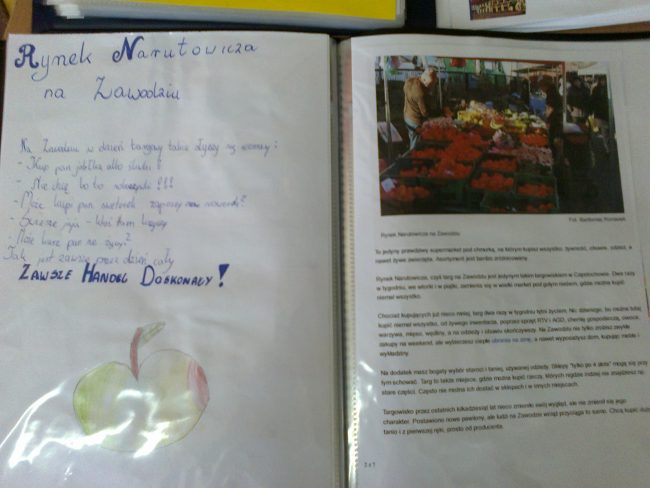 Rynek Narutowicza
na Zawodziu
Na Zawodziu w dzień targowy takie słyszy się rozmowy:
- Kup pan jabłka albo śliwki!
- Nie chcę bo to robaczywki!!!
- Może kupi pan sweterek
- Może kurę pan se życzy?
Tak jest zawsze przez dzień cały
ZAWSZE HANDEL DOSKONAŁY!
Fot. Bartłomiej
Rynek Narutowicza na Zawodziu
To jedyny prawdziwy supermarket pod chmurką, na którym kupisz wszystko: żywność, obuwie, odzież, a
nawet żywe zwierzęta. Asortyment jest bardzo zróżnicowany.
Rynek Narutowicza, czyli targ na Zawodziu jest jedynym takim targowiskiem w Częstochowie. Dwa razy
w tygodniu, we wtorki i w piątki, zamienia się w wielki market pod gołym niebem, gdzie można kupić
niemal wszystko.
Chociaż kupujących już nieco mniej, targ dwa razy w tygodniu tętni życiem. Nic dziwnego, bo można tutaj
kupić niemal wszystko, od żywego inwentarza, poprzez sprzęt RTV i AGD, chemię gospodarczą, owoce,
warzywa, mięso, wędliny, a na odzieży i obuwiu skończywszy. Na Zawodziu nie tylko zrobisz zwykłe
zakupy na weekend, ale wybierzesz ciepłe ubrania na zimę, a nawet wyposażysz dom, kupując meble i
wykładziny.
Na dodatek masz bogaty wybór staroci i taniej, używanej odzieży. Sklepy "tylko go 4 złote" mogą się przy
tym schować. Targ to także miejsce, gdzie można kupić rzeczy, których nigdzie indziej nie znajdziesz np.
stare części. Często nie można ich dostać w sklepach i w innych miejscach.
Targowisko przez ostatnich kilkadziesiąt lat nieco zmieniło swój wygląd, ale nie zmienił się jego
charakter. Postawiono nowe pawilony, ale ludzi na Zawodzie wciąż przyciąga to samo. Chcą kupić dużo,
tanio i z pierwszej ręki, prosto od producenta.